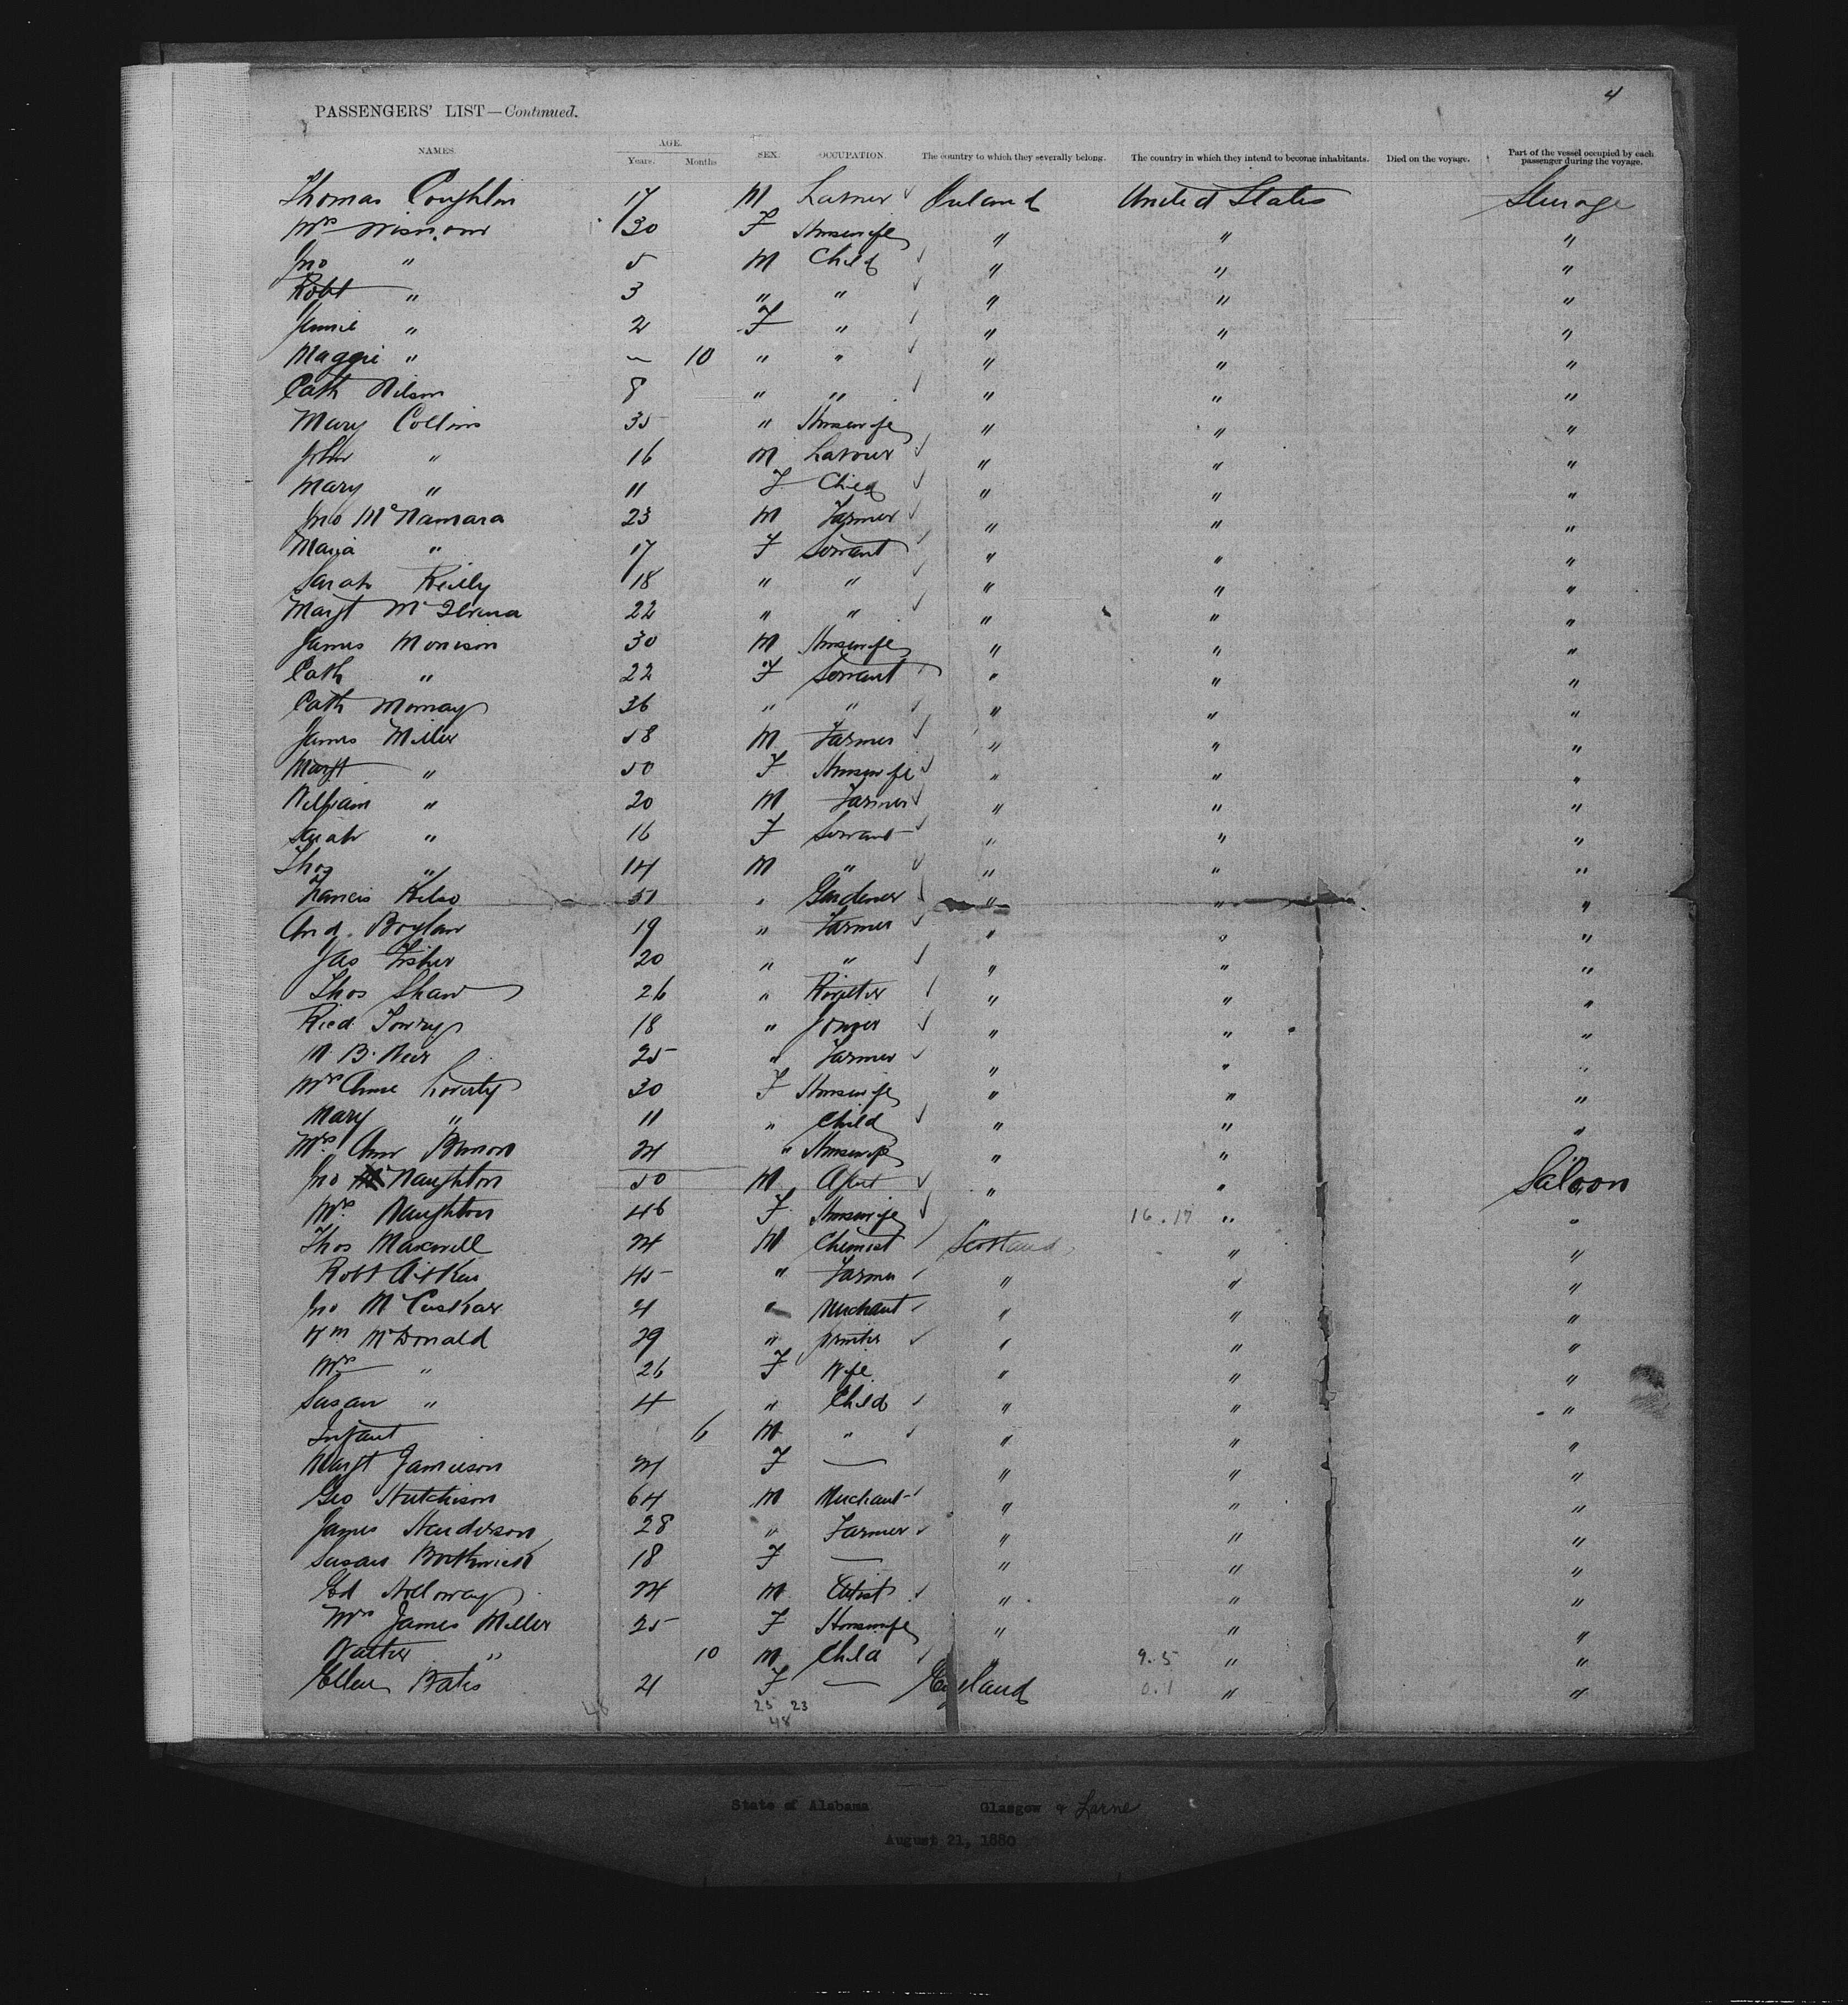 4
PASSENGERS' LIST—Continued.
NAMES. AGE. Years. Months SEX. OCCUPATION. The country to which they severally belong. The country in which they intend to become inhabitants. Died on the voyage. Part of the vessel occupied by each passenger during the voyage.
Thomas Coughlin 17 M Labourer Ireland United States Steerage
Mrs 30 F Housewife " " "
Jno " 5 M Child " " "
Robt " 3 " " " " "
Jennie " 2 F " " " "
Maggie " 10 " " " " "
Cath Wilson 8 " " " " "
Mary Collins 35 " Housewife " " "
John " 16 M Labourer " " "
Mary " 11 F Child " " "
Jno McNamara 23 M Farmer " " "
Maria " 17 F Servant " " "
Sarah Reilly 18 " " " " "
Margt 22 " " " " "
James Morrison 30 M Housewife " " "
Cath " 22 F Servant " " "
Cath 36 " " " " "
James Miller 58 M Farmer " " "
Margt " 50 F Housewife " " "
William " 20 M Farmer " " "
Sarah " 16 F Servant " " "
Thos " 14 M " " " "
Francis Kelso 51 " Gardener " " "
And. Boylan 19 " Farmer " " "
Jas Fisher 20 " " " " "
Thos Shaw 26 " " " "
Ricd Lowry 18 " Joiner " " "
W. B. Weir 25 " Farmer " " "
Mrs Anne Loverty 30 F Housewife " " "
Mary " 11 " Child " " "
Mrs Ann 24 " Housewife " " "
Jno Naughton 50 M Agent " " Saloon
Mrs Naughton 46 F Housewife 16.17 " "
Thos Maxwell 24 M Chemist Scotland " "
Robt Aitken 45 " Farmer " " "
Jno McCuskar 21 " Merchant " " "
Wm McDonald 29 " Printer " " "
Mrs " 26 F Wife " " "
Susan " 4 " Child " " "
Infant 6 M " " " "
Margt Jamieson 24 F — " " "
Geo Hutchison 64 M Merchant " " "
James Henderson 28 " Farmer " " "
Susan Borthwick 18 F — " " "
Ed Holloway 24 M Artist " " "
Mrs James Miller 25 F Housewife " " "
Walter " 10 M Child " 9.5 " "
Ellen Bates 21 F — England 0.1 " "
48 25 23
48
State of Alabama Glasgow & Larne
August 21, 1880